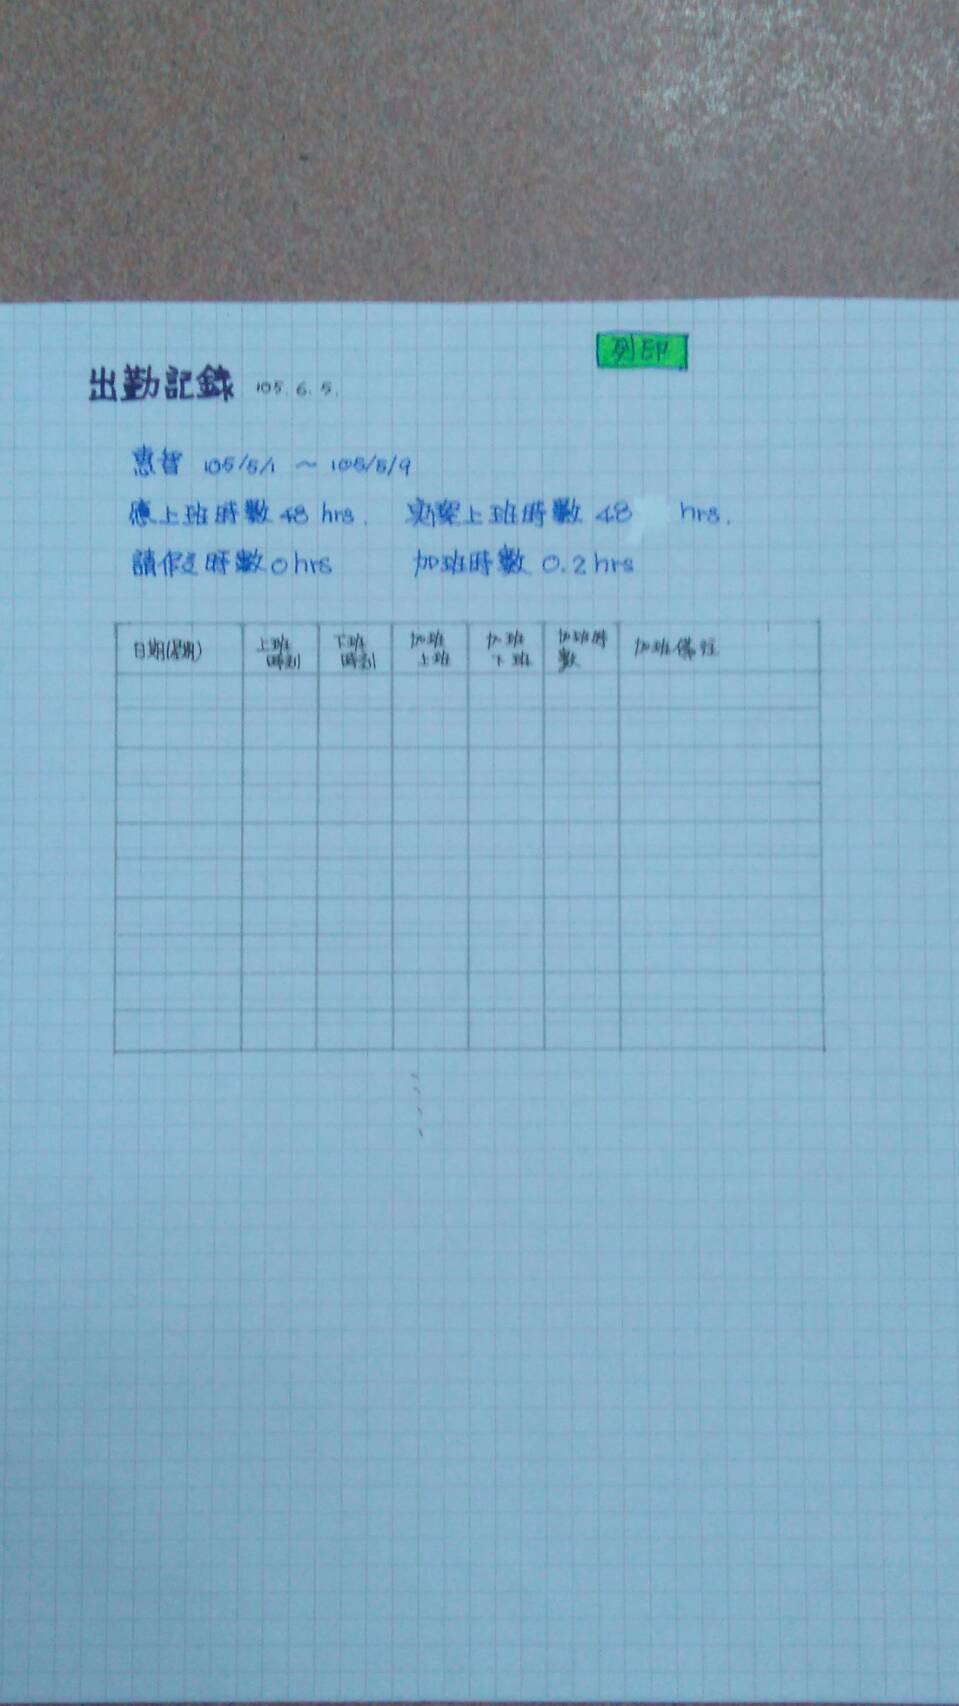 列印
出勤記錄 105.6.5.
惠智 105/5/1 ~ 105/5/9
應上班時數 48 hrs. 實際上班時數 48 hrs.
請假時數 0 hrs 加班時數 0.2 hrs
日期(星期) 上班時刻 下班時刻 加班上班 加班下班 加班時數 加班備註